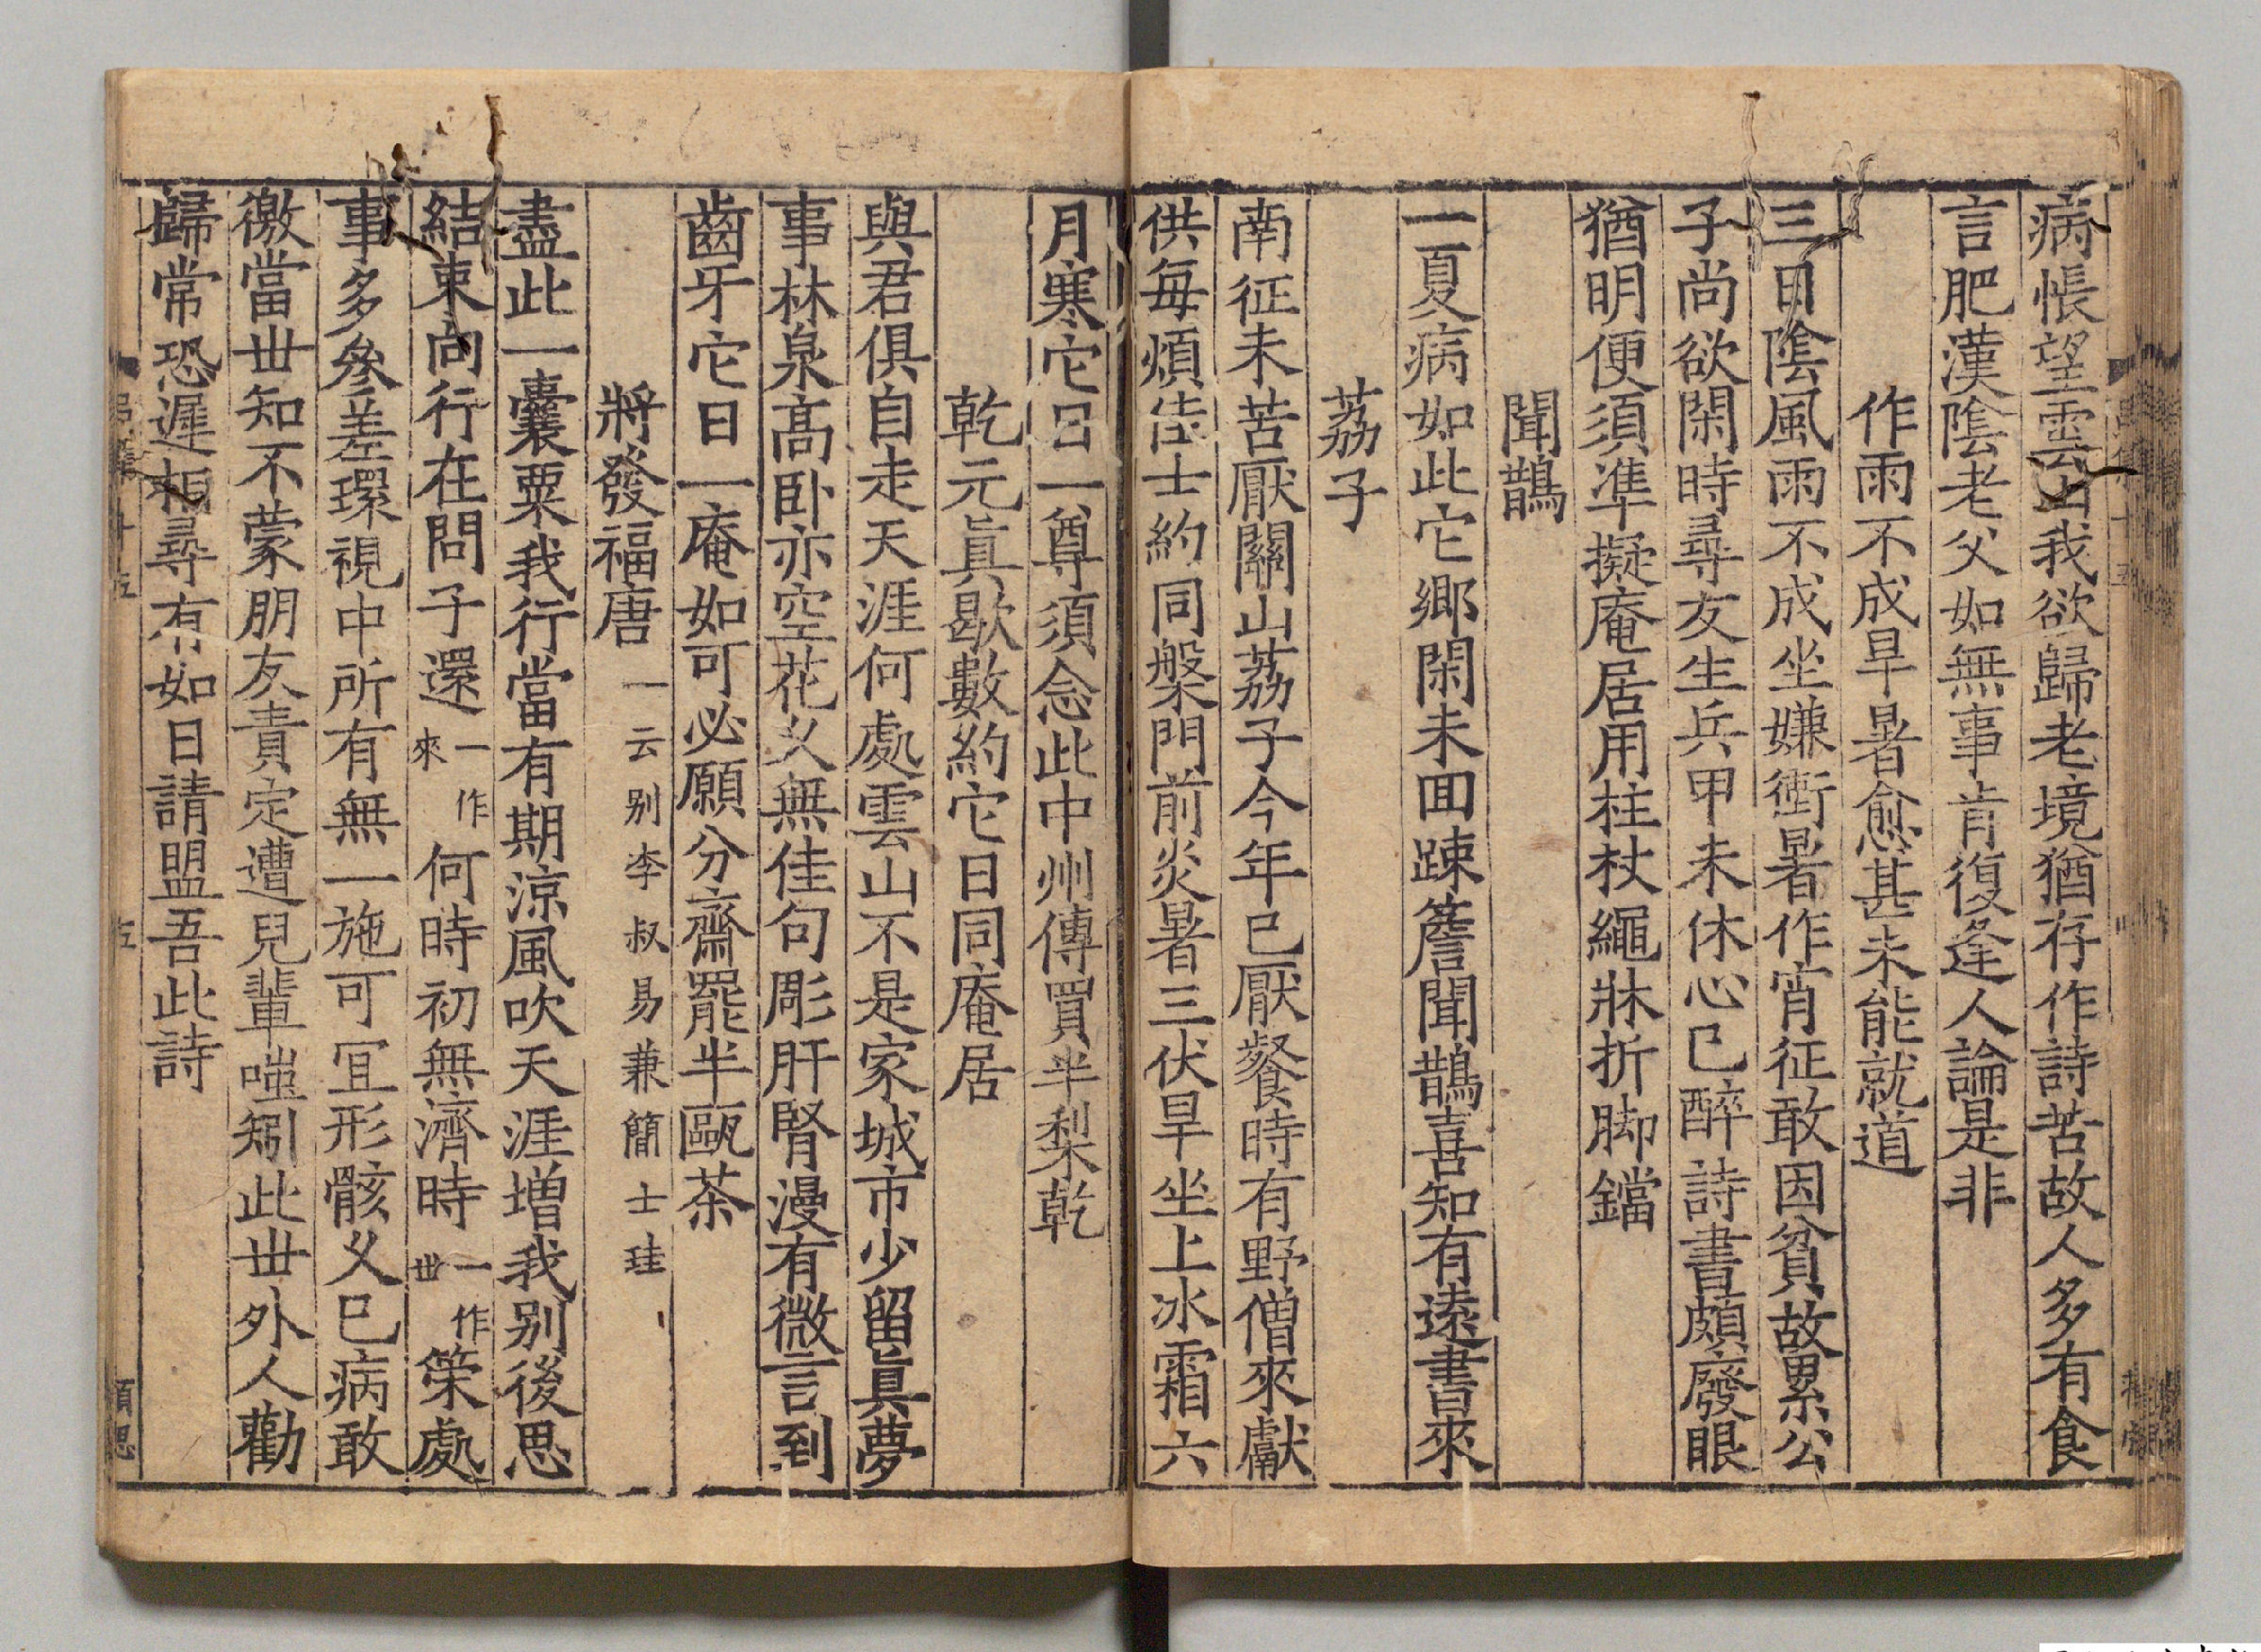 病悵望雲山我欲歸老境猶存作詩苦故人多有食
言肥漢陰老父如無事肯復逢人論是非
作雨不成旱暑愈甚未能就道
三日陰風雨不成坐嫌衝暑作宵征敢因貧故累公
子尚欲閑時尋友生兵甲未休心已醉詩書頗廢眼
猶明便須準擬庵居用柱杖繩牀折脚鐺
聞鵲
一夏病如此它鄉閑未回踈簷聞鵲喜知有遠書來
荔子
南征未苦厭關山荔子今年已厭餐時有野僧來獻
供每煩佳士約同槃門前炎暑三伏旱坐上冰霜六
月寒它日一尊須念此中州傳買半梨乾
乾元眞歇數約它日同庵居
與君俱自走天涯何處雲山不是家城市少留眞夢
事林泉高卧亦空花义無佳句彫肝腎漫有微言到
齒牙它日一庵如可必願分齋罷半甌茶
將發福唐一云别李叔易兼簡士珪
盡此一囊粟我行當有期涼風吹天涯增我别後思
結束向行在問子還一作來何時初無濟時一作丗策處
事多參差環視中所有無一施可冝形骸义已病敢
徼當丗知不蒙朋友責定遭兒輩嗤矧此丗外人勸
歸常恐遲相尋有如日請盟吾此詩